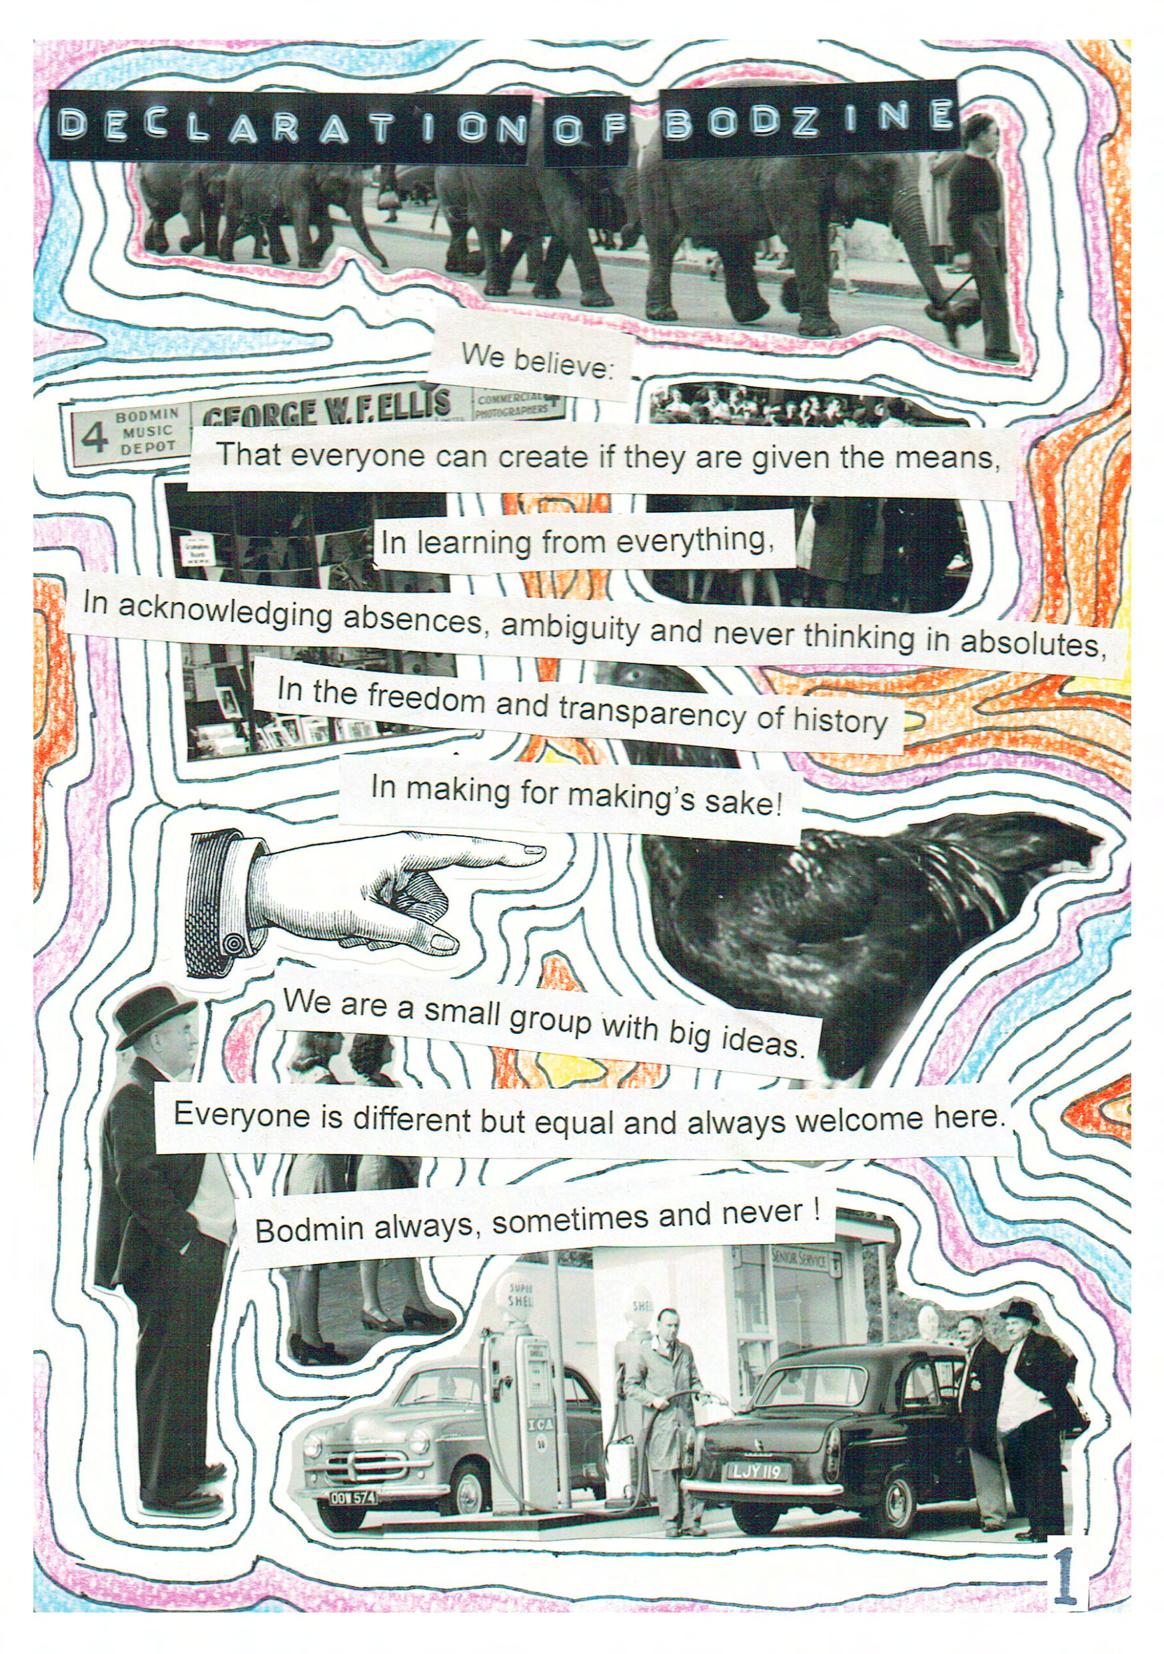 DECLARATION OF BODZINE
We believe:
4
BODMIN
MUSIC
DEPOT
GEORGE W.F. ELLIS
COMMERCIAL
PHOTOGRAPHERS
4
That everyone can create if they are given the means,
In learning from everything,
In acknowledging absences, ambiguity and never thinking in absolutes,
In the freedom and transparency of history
In making for making's sake!
We are a small group with big ideas.
Everyone is different but equal and always welcome here.
Bodmin always, sometimes and never !
SENIOR SERVICE
SUPER
SHELL
SHELL
ICA
LJY 119
OOW 574
1